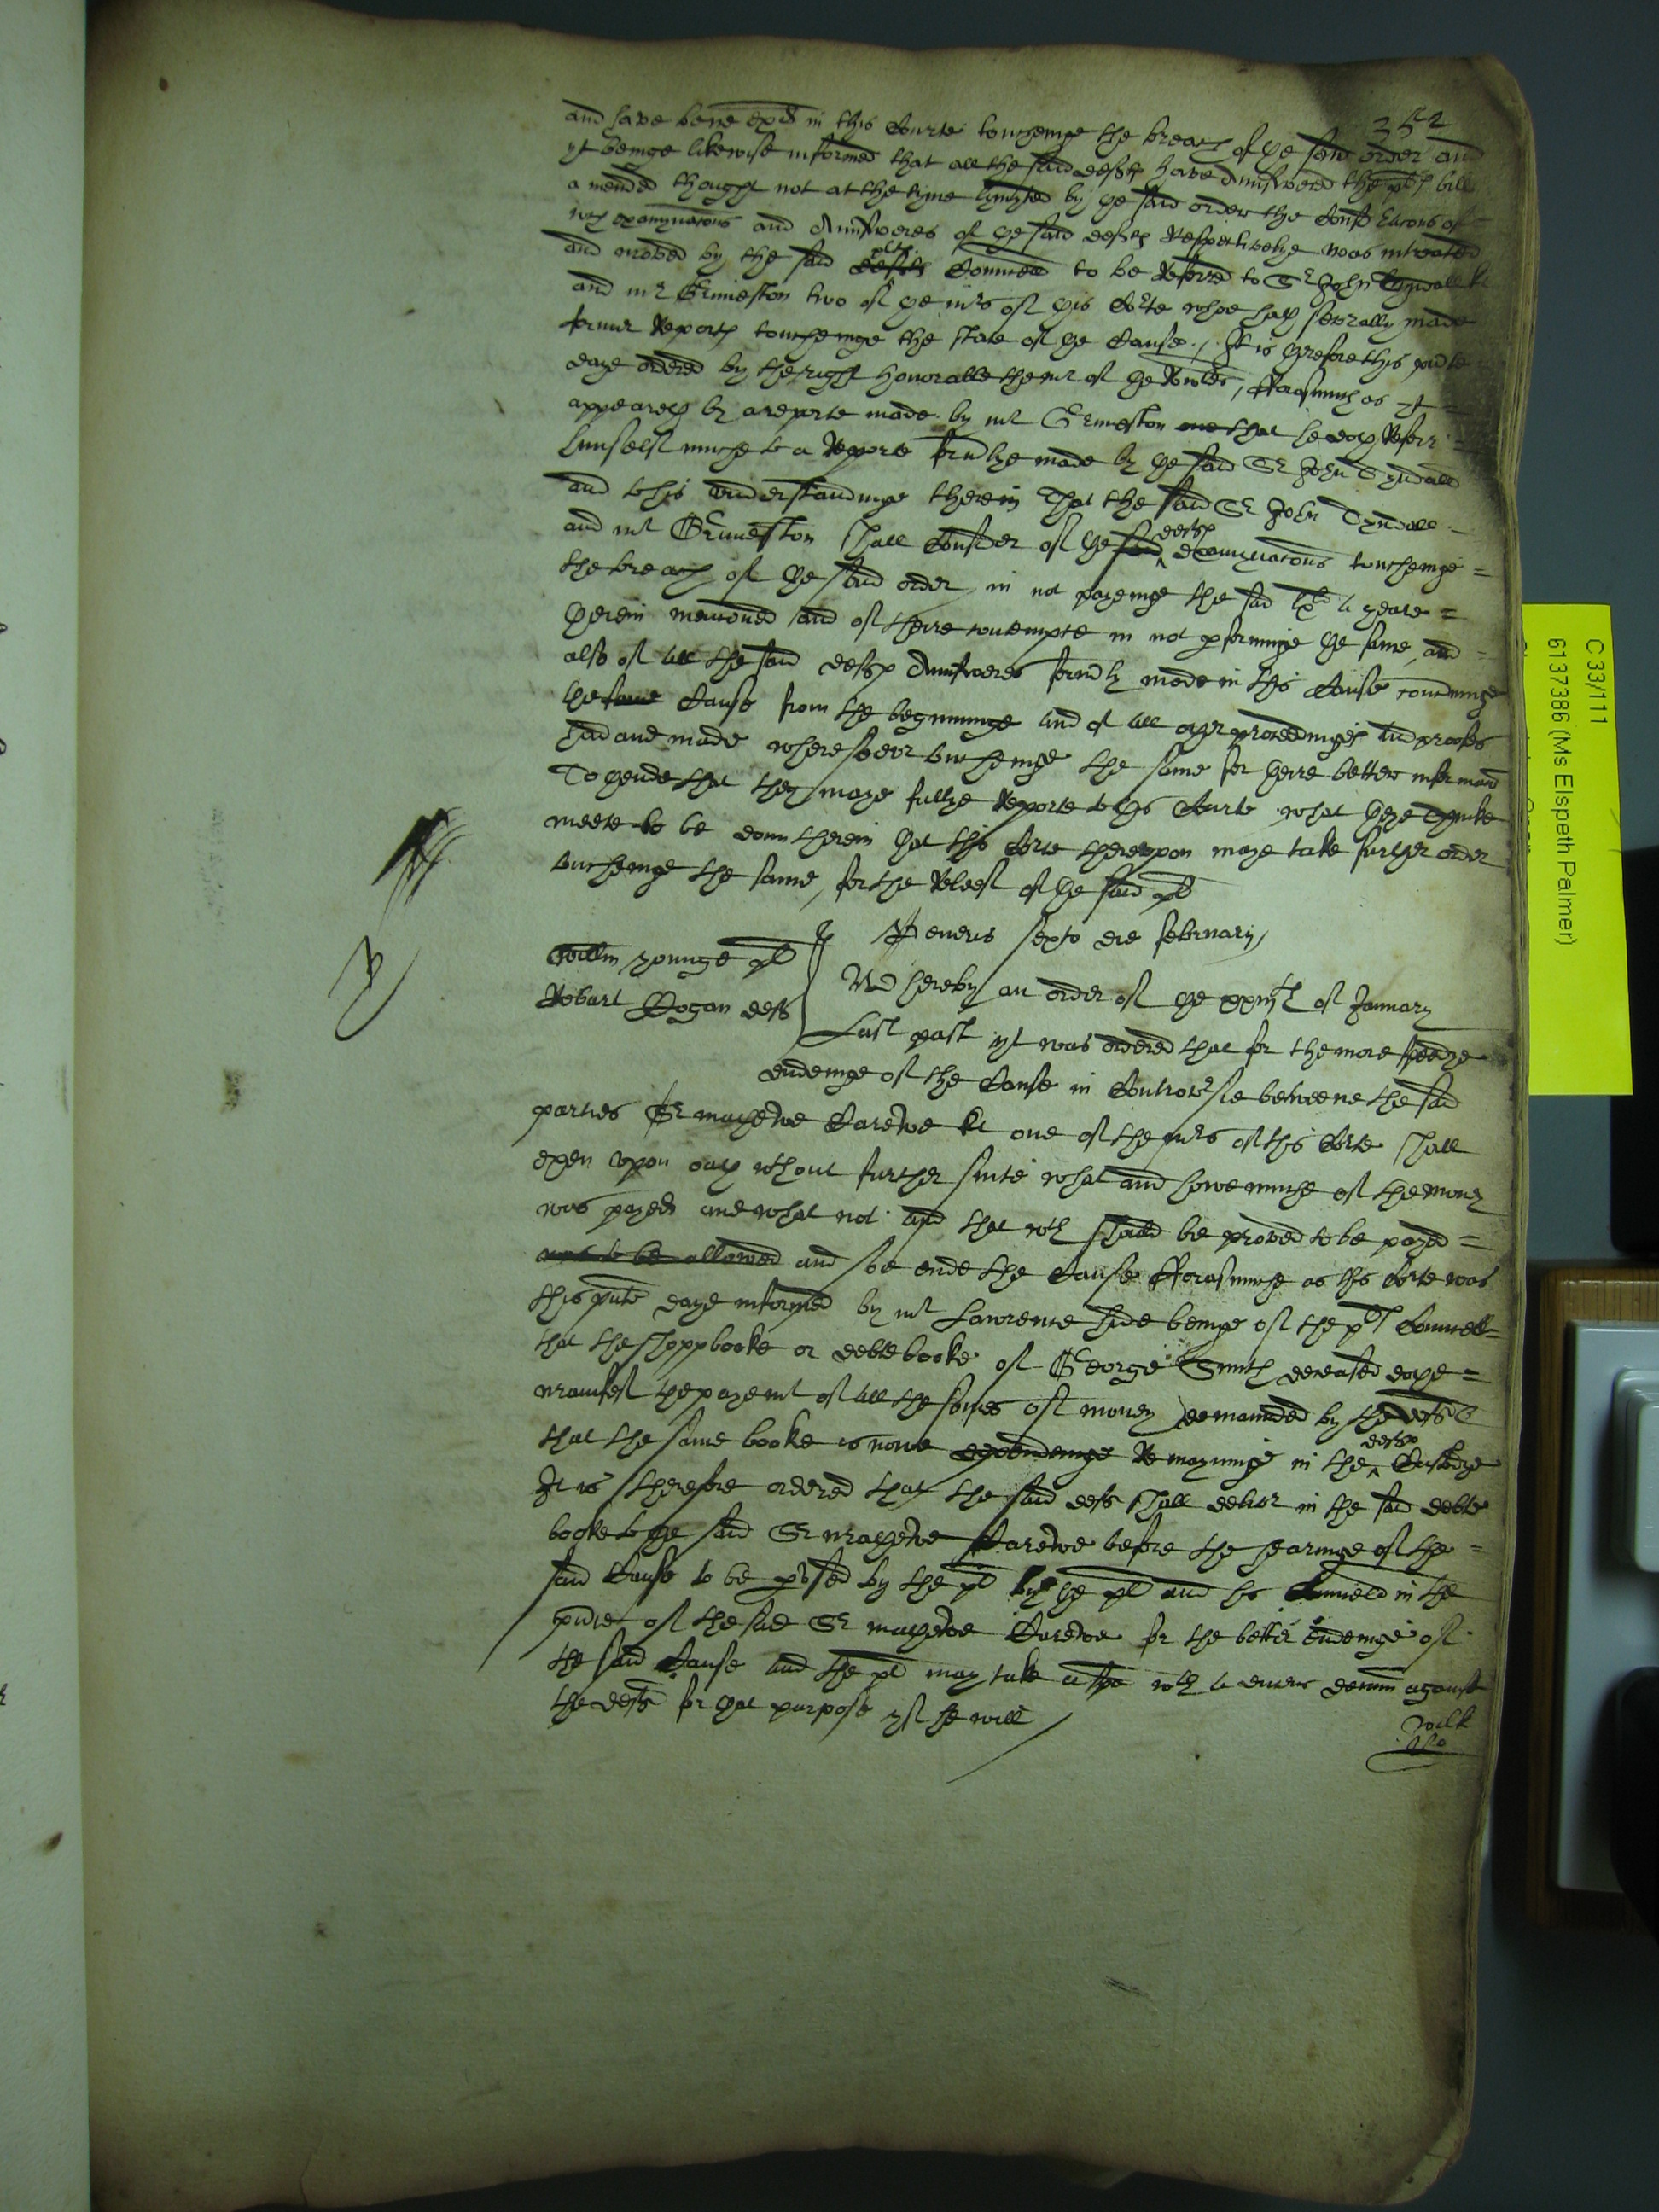 352
and have bene exed in this Courte towchinge the breach of ye said order and
yt beinge likewise informed that all the said defts have Aunswered the pls bill
amended though not at the tyme lymyted by ye said order the Consideracons of =
wch examynacons and Aunsweres of ye said defts Respectively was intreated
and moved by the said plts Councell to be Referred to Sr John Tyndall kt
and mr Grimeston two of ye mrs of this Corte whoe hath severally made
former Reports towchinge the state of ye Cause./ It is therefore this pnte
daye ordered by the right honorable the mr of ye Rowles, fforasmuch as it =
appeareth by a reporte made by mr Grimeston that he doth Referr =
himselfe muche to a Reporte formlye made by ye said Sr John Tyndall
and to his understandinge therein That the said Sr John Tyndall =
and mr Grimeston shall Consider of ye defts examynacons towchinge =
the breach of ye said order in not payeinge the said li a yeare =
therein mencioned and of theire contempte in not pforminge ye same, and =
also of all the said defts Aunsweres formly made in this Cause concerninge
ye Cause from the begynninge and of all other proceedinges and proofes
had and made whatsoever towchinge the same for theire better informacon
To thende that they maye fullye Reporte to this Courte what they thinke
meete to be donn therein that this Corte thereupon maye take further order
towchinge the same, for the Releef of ye said pl
Veneris sexto die february
Willm Younge pl
Robart Dogan deft
Whereby an order of ye xxiiijth of January
Last past yt was ordered that for the more speedye
endeinge of the Cause in Controversie betweene the said
parties Sr mathewe Carewe kt one of the mrs of this Corte shall
exen upon oath without further suite what and howe muche of the mony
was payed and what not and that wch should be proved to be payed =
was to be allowed and soe ende the Cause fforasmuche as this Corte was
this pnte daye informed by mr Lawrence hide beinge of the pls Councell =
that the shoppbooke or debte booke of George Smith deceased doth =
manifest the payemt of all the somes of money demaunded by the deft &
that the same booke is nowe Remayninge in the defts Custodye
It is therefore ordered that the said deft shall deliver in the said debte
booke to ye said Sr mathewe Carewe before the hearinge of the =
said Cause to be pused by the pl by ye pl and his Councell in the
pnce of the said Sr mathewe Carewe for the better endeinge of
the said Cause and the pl may take a spa against
the deft for that purpose yf he will
C 33/111
6137386 (Ms Elspeth Palmer)